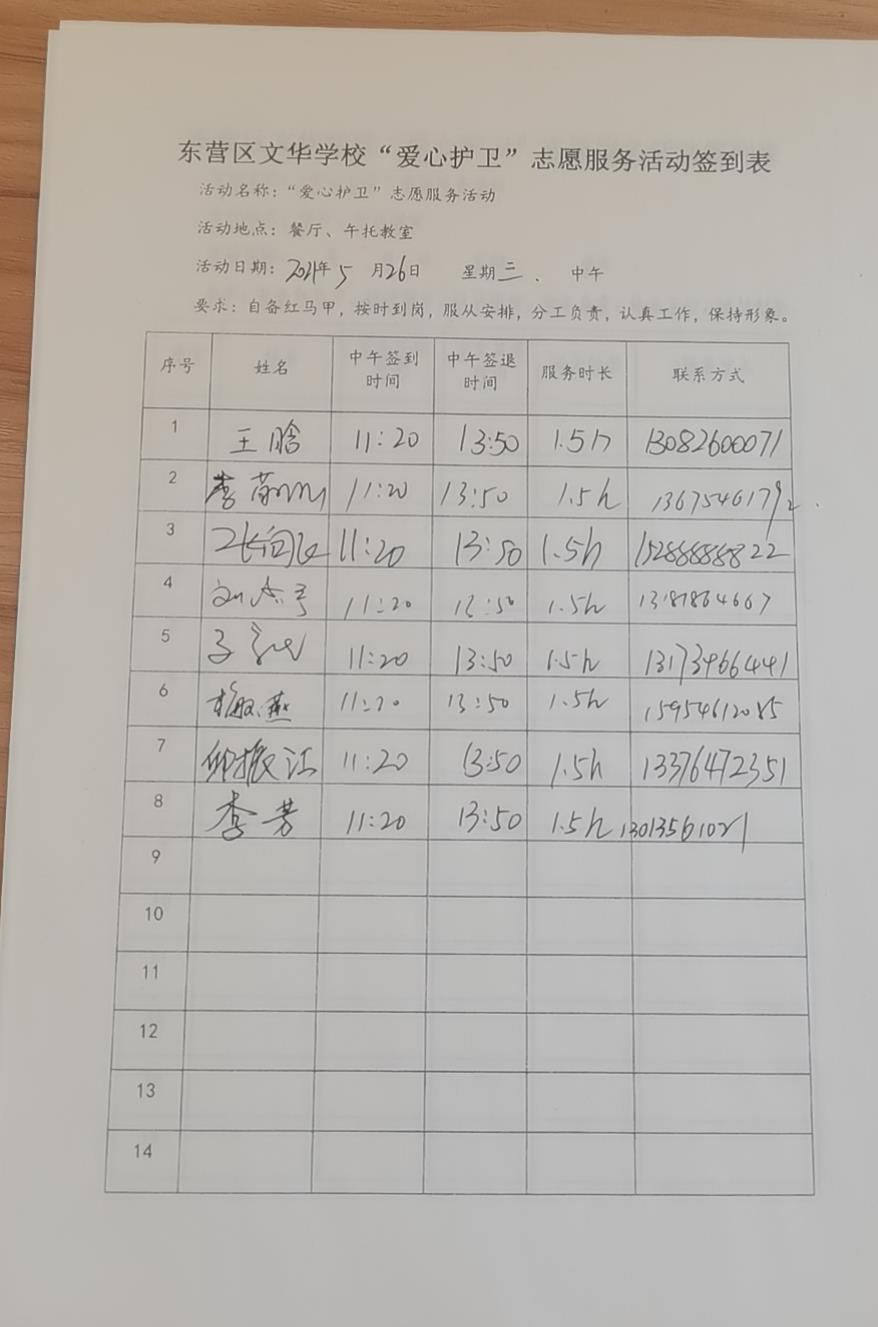 东营区文华学校“爱心护卫”志愿服务活动签到表
活动名称：“爱心护卫”志愿服务活动
活动地点：餐厅、午托教室
活动日期：2021年5月26日 星期三、 中午
要求：自备红马甲，按时到岗，服从安排，分工负责，认真工作，保持形象。
序号 姓名 中午签到时间 中午签退时间 服务时长 联系方式
1 王晗 11:20 13:50 1.5h 13082600071
2 李 11:20 13:50 1.5h 13675461792
3 11:20 13:50 1.5h 15288888822
4 11:20 13:50 1.5h
5 11:20 13:50 1.5h 13173966441
6 梅燕 11:20 13:50 1.5h
7 振江 11:20 13:50 1.5h 13376472351
8 李芳 11:20 13:50 1.5h 13013561021
9
10
11
12
13
14